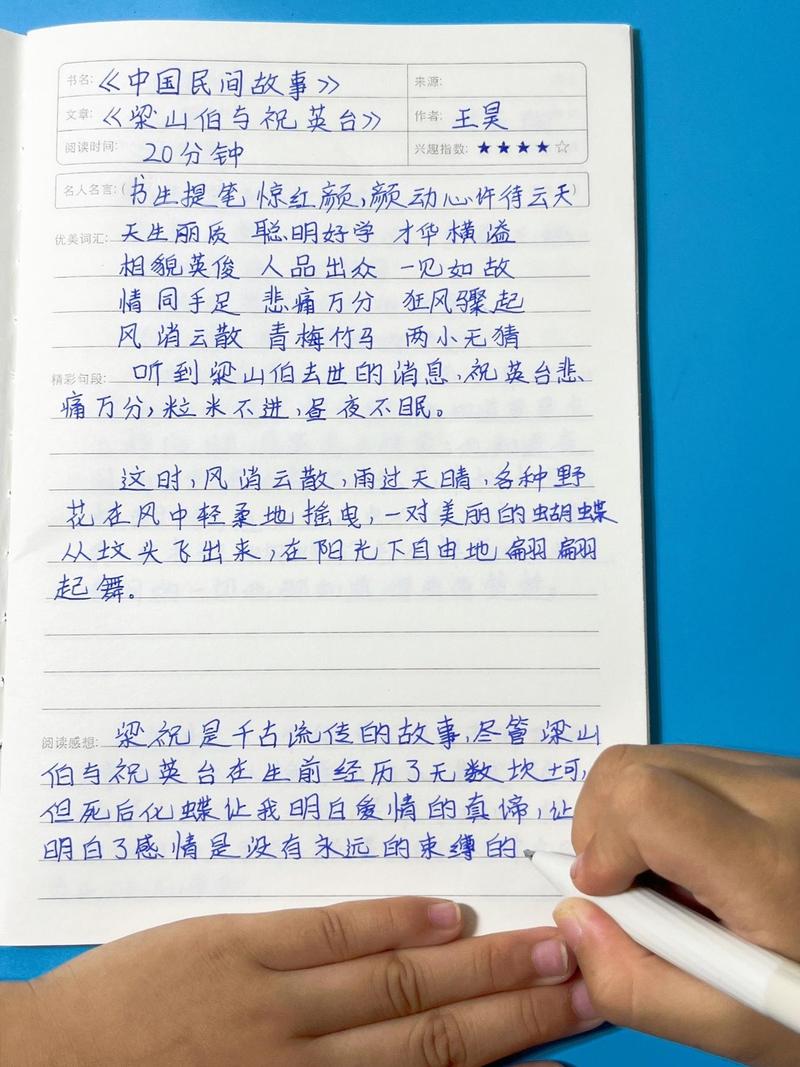 书名:《中国民间故事》 来源:
文章:《梁山伯与祝英台》 作者: 王昊
阅读时间: 20分钟 兴趣指数: ★★★★☆
名人名言:(书生提笔惊红颜,颜动心许待云天)
优美词汇: 天生丽质 聪明好学 才华横溢
相貌英俊 人品出众 一见如故
情同手足 悲痛万分 狂风骤起
风消云散 青梅竹马 两小无猜
精彩句段: 听到梁山伯去世的消息,祝英台悲
痛万分,粒米不进,昼夜不眠。
这时,风消云散,雨过天晴,各种野
花在风中轻柔地摇曳,一对美丽的蝴蝶
从坟头飞出来,在阳光下自由地翩翩
起舞。
阅读感想: 梁祝是千古流传的故事,尽管梁山
伯与祝英台在生前经历了无数坎坷,
但死后化蝶让我明白爱情的真谛,让
明白了感情是没有永远的束缚的